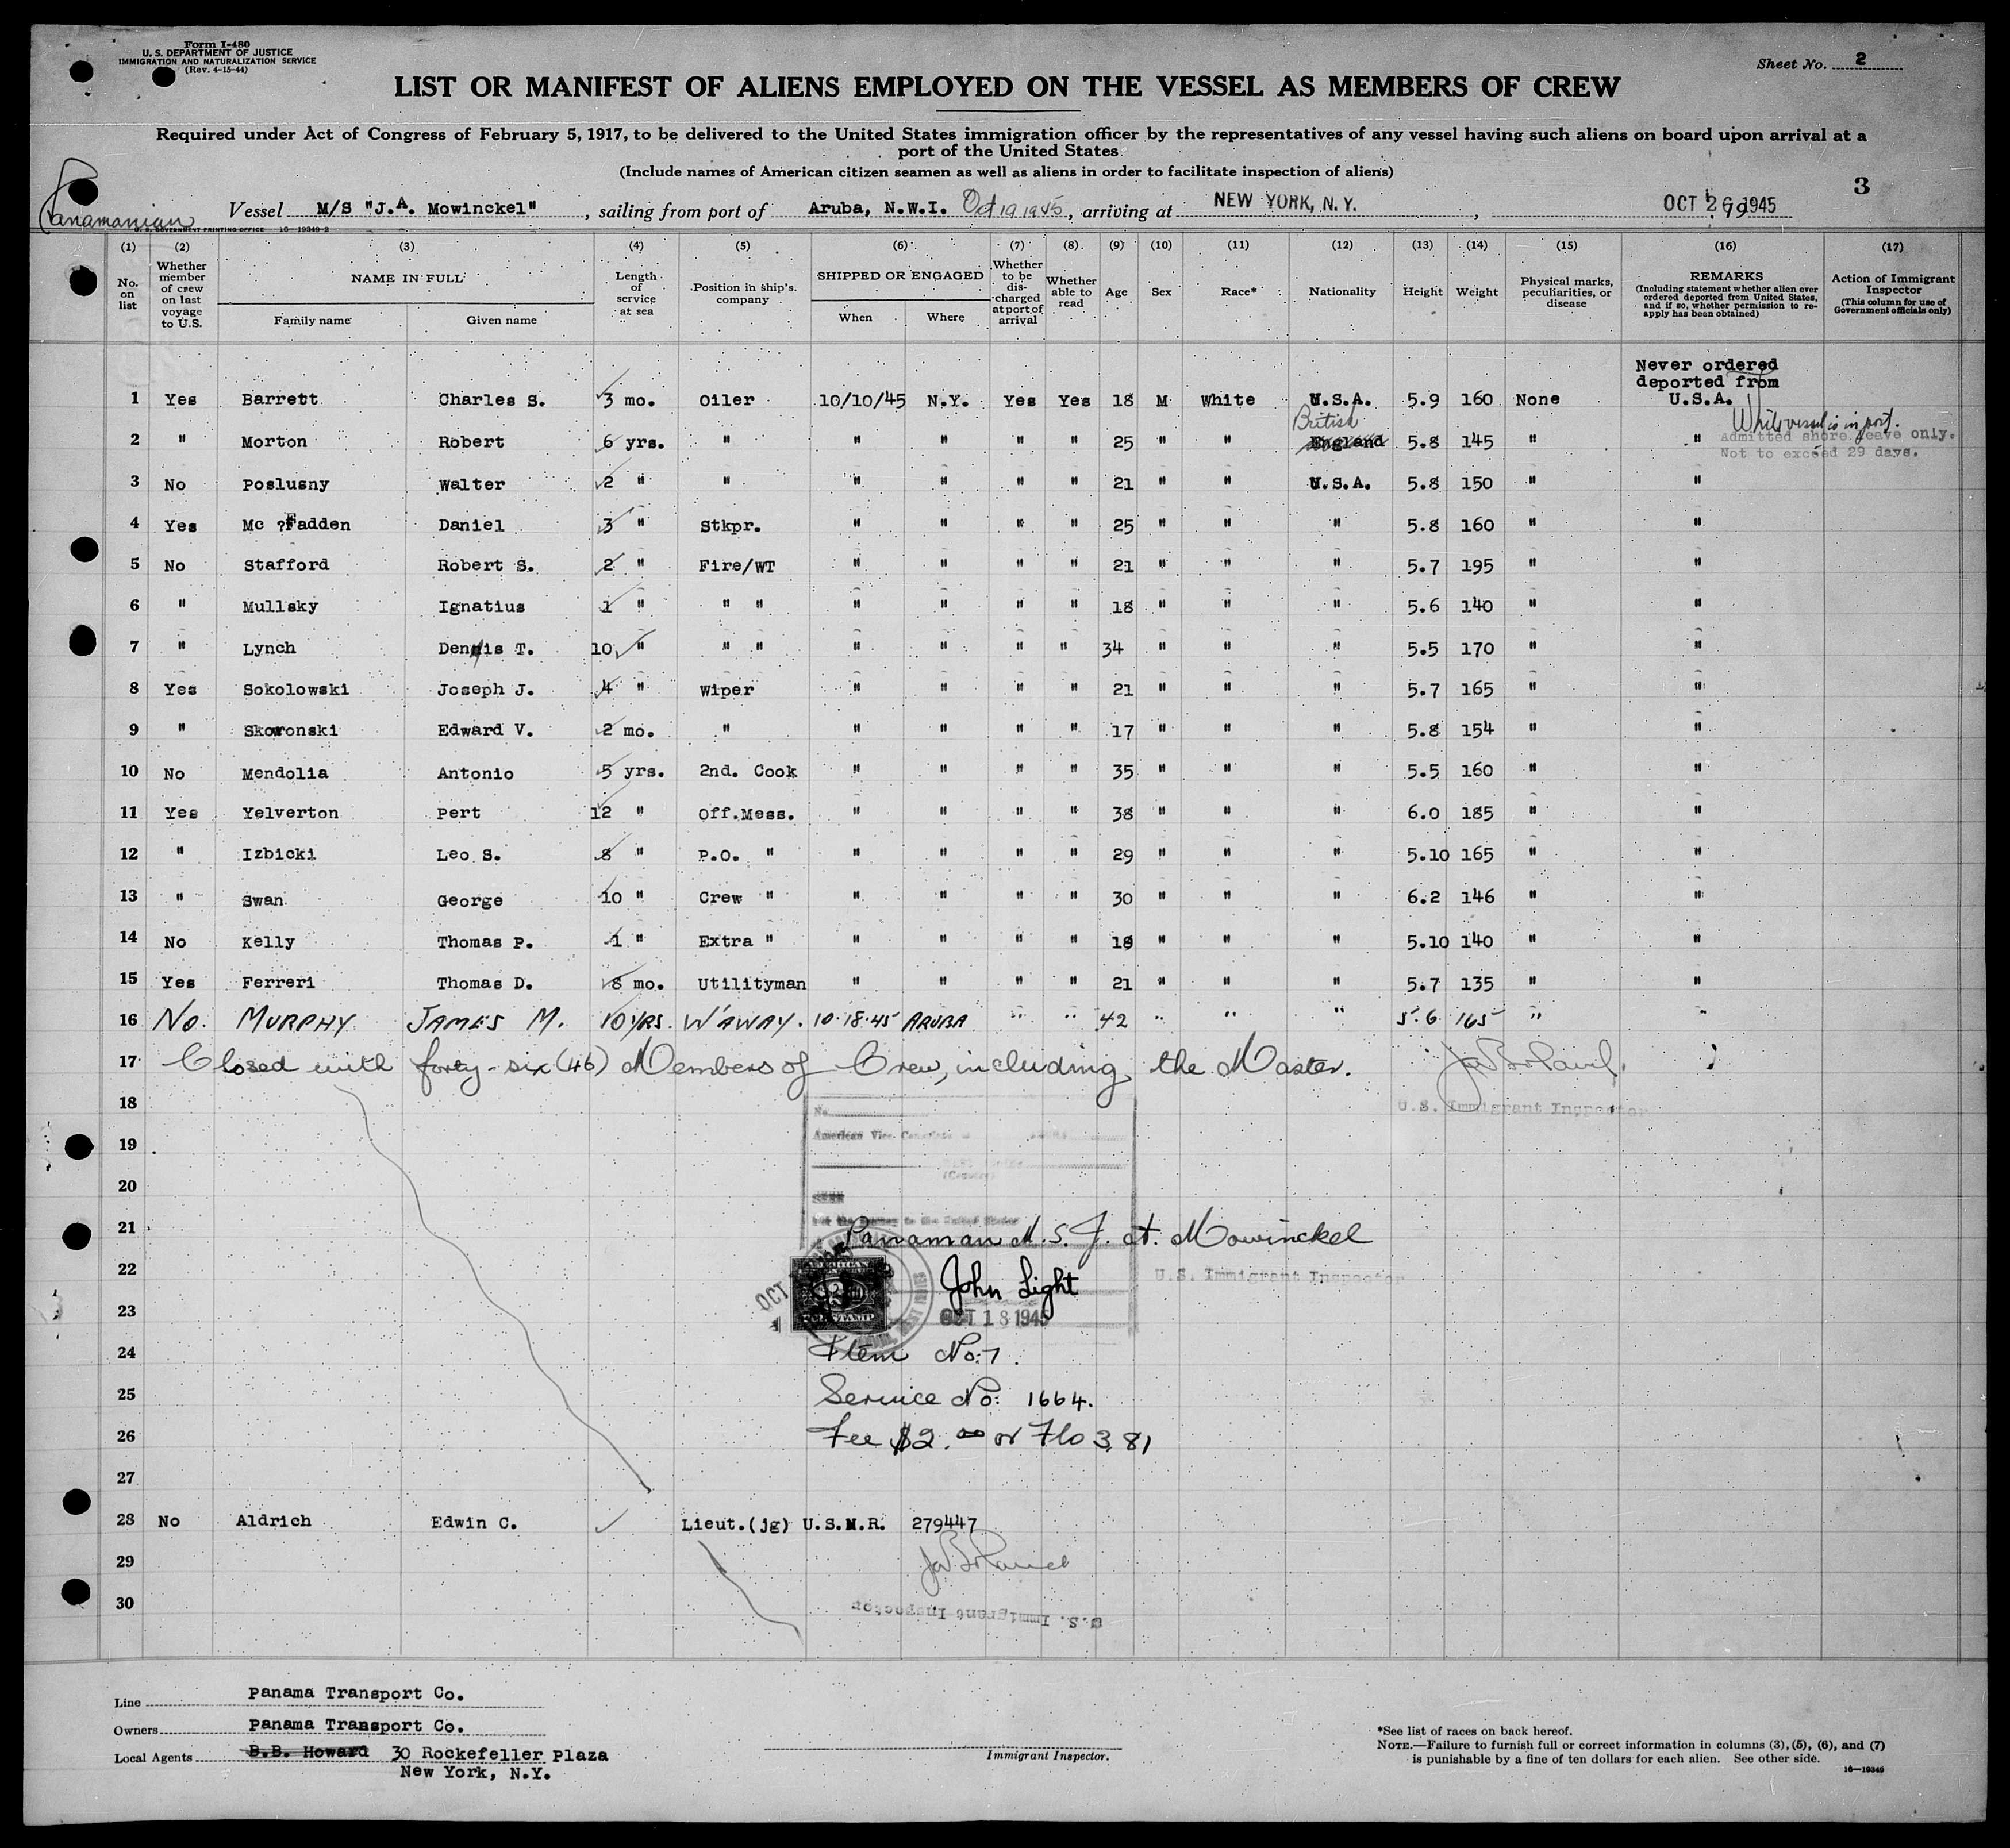 Form I-480
U. S. DEPARTMENT OF JUSTICE
IMMIGRATION AND NATURALIZATION SERVICE
(Rev. 4-15-44)
Sheet No. 2
LIST OR MANIFEST OF ALIENS EMPLOYED ON THE VESSEL AS MEMBERS OF CREW
Required under Act of Congress of February 5, 1917, to be delivered to the United States immigration officer by the representatives of any vessel having such aliens on board upon arrival at a
port of the United States
(Include names of American citizen seamen as well as aliens in order to facilitate inspection of aliens)
3
Panamanian Vessel M/S "J.A. Mowinckel", sailing from port of Aruba, N.W.I. Oct 19 1945, arriving at NEW YORK, N.Y., OCT 26 1945
U. S. GOVERNMENT PRINTING OFFICE 16-19349-2
(1) (2) (3) (4) (5) (6) (7) (8) (9) (10) (11) (12) (13) (14) (15) (16) (17)
No. on list
Whether member of crew on last voyage to U.S.
NAME IN FULL
Family name
Given name
Length of service at sea
Position in ship's company
SHIPPED OR ENGAGED
When
Where
Whether to be discharged at port of arrival
Whether able to read
Age
Sex
Race*
Nationality
Height
Weight
Physical marks, peculiarities, or disease
REMARKS
(Including statement whether alien ever ordered deported from United States, and if so, whether permission to reapply has been obtained)
Action of Immigrant Inspector
(This column for use of Government officials only)
Never ordered
deported from
1 Yes Barrett Charles S. 3 mo. Oiler 10/10/45 N.Y. Yes Yes 18 M White U.S.A. 5.9 160 None U.S.A.
British
While vessel is in port.
2 " Morton Robert 6 yrs. " " " " " 25 " " England 5.8 145 " " Admitted shore leave only.
Not to exceed 29 days.
3 No Poslusny Walter 2 " " " " " " 21 " " U.S.A. 5.8 150 " "
4 Yes Mc ?Fadden Daniel 3 " Stkpr. " " " " 25 " " " 5.8 160 " "
5 No Stafford Robert S. 2 " Fire/WT " " " " 21 " " " 5.7 195 " "
6 " Mullsky Ignatius 1 " " " " " " " 18 " " " 5.6 140 " "
7 " Lynch Dennis T. 10 " " " " " " " 34 " " " 5.5 170 " "
8 Yes Sokolowski Joseph J. 4 " Wiper " " " " 21 " " " 5.7 165 " "
9 " Skowronski Edward V. 2 mo. " " " " " 17 " " " 5.8 154 " "
10 No Mendolia Antonio 5 yrs. 2nd. Cook " " " " 35 " " " 5.5 160 " "
11 Yes Yelverton Pert 12 " Off.Mess. " " " " 38 " " " 6.0 185 " "
12 " Izbicki Leo S. 8 " P.O. " " " " " 29 " " " 5.10 165 " "
13 " Swan George 10 " Crew " " " " " 30 " " " 6.2 146 " "
14 No Kelly Thomas P. 1 " Extra " " " " " 18 " " " 5.10 140 " "
15 Yes Ferreri Thomas D. 8 mo. Utilityman " " " " 21 " " " 5.7 135 " "
16 No. MURPHY JAMES M. 10 YRS. W'AWAY. 10-18-45 ARUBA " " 42 " " " 5.6 165 " "
17 Closed with forty-six (46) Members of Crew, including the Master.
18 U.S. Immigrant Inspector
No.
American Vice Consulate
19
(Country)
20
SEEN
For the journey to the United States
21 Panaman M.S. J. A. Mowinckel
22 John Light U.S. Immigrant Inspector
23 OCT OCT 18 1945
24 Item No: 7.
25 Service No: 1664.
26 Fee $2.00 or Flo 3,81
27
28 No Aldrich Edwin C. Lieut.(jg) U.S.N.R. 279447
29
30 U.S. Immigrant Inspector
Line Panama Transport Co.
Owners Panama Transport Co.
Local Agents B.B. Howard 30 Rockefeller Plaza
New York, N.Y.
Immigrant Inspector.
*See list of races on back hereof.
NOTE.—Failure to furnish full or correct information in columns (3), (5), (6), and (7)
is punishable by a fine of ten dollars for each alien. See other side.
16—19349